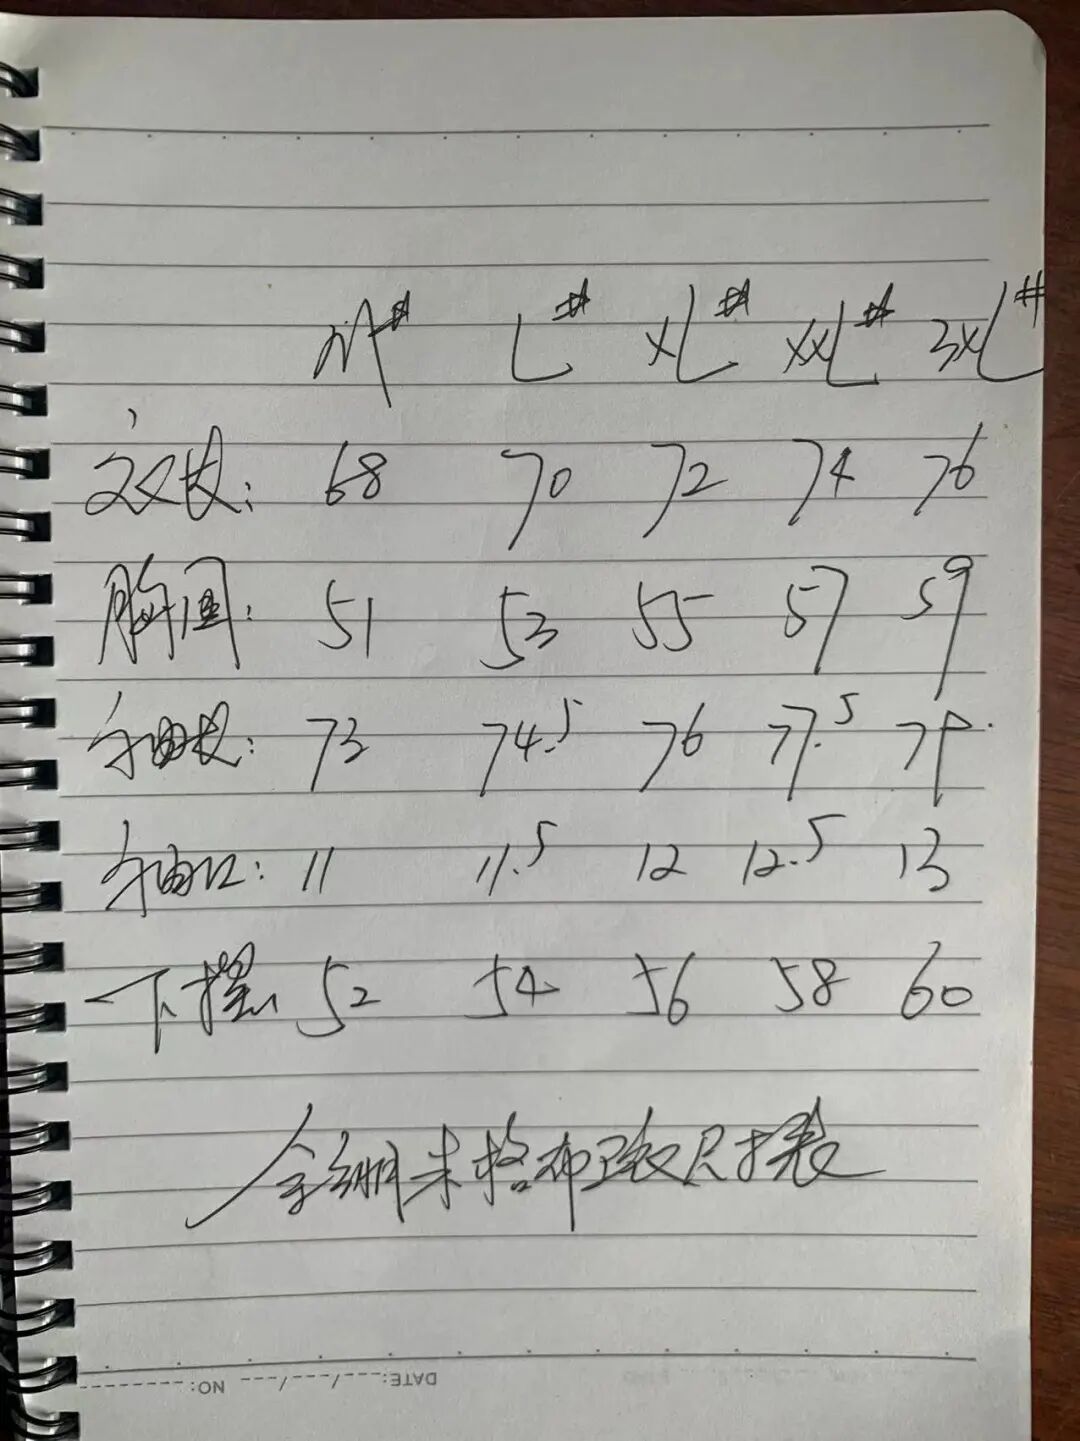 M# L# XL# XXL# 3XL#
衣长: 68 70 72 74 76
胸围: 51 53 55 57 59
袖长: 73 74.5 76 77.5 79
袖口: 11 11.5 12 12.5 13
下摆: 52 54 56 58 60
全 格布卫衣尺寸表
DATE: / / NO: